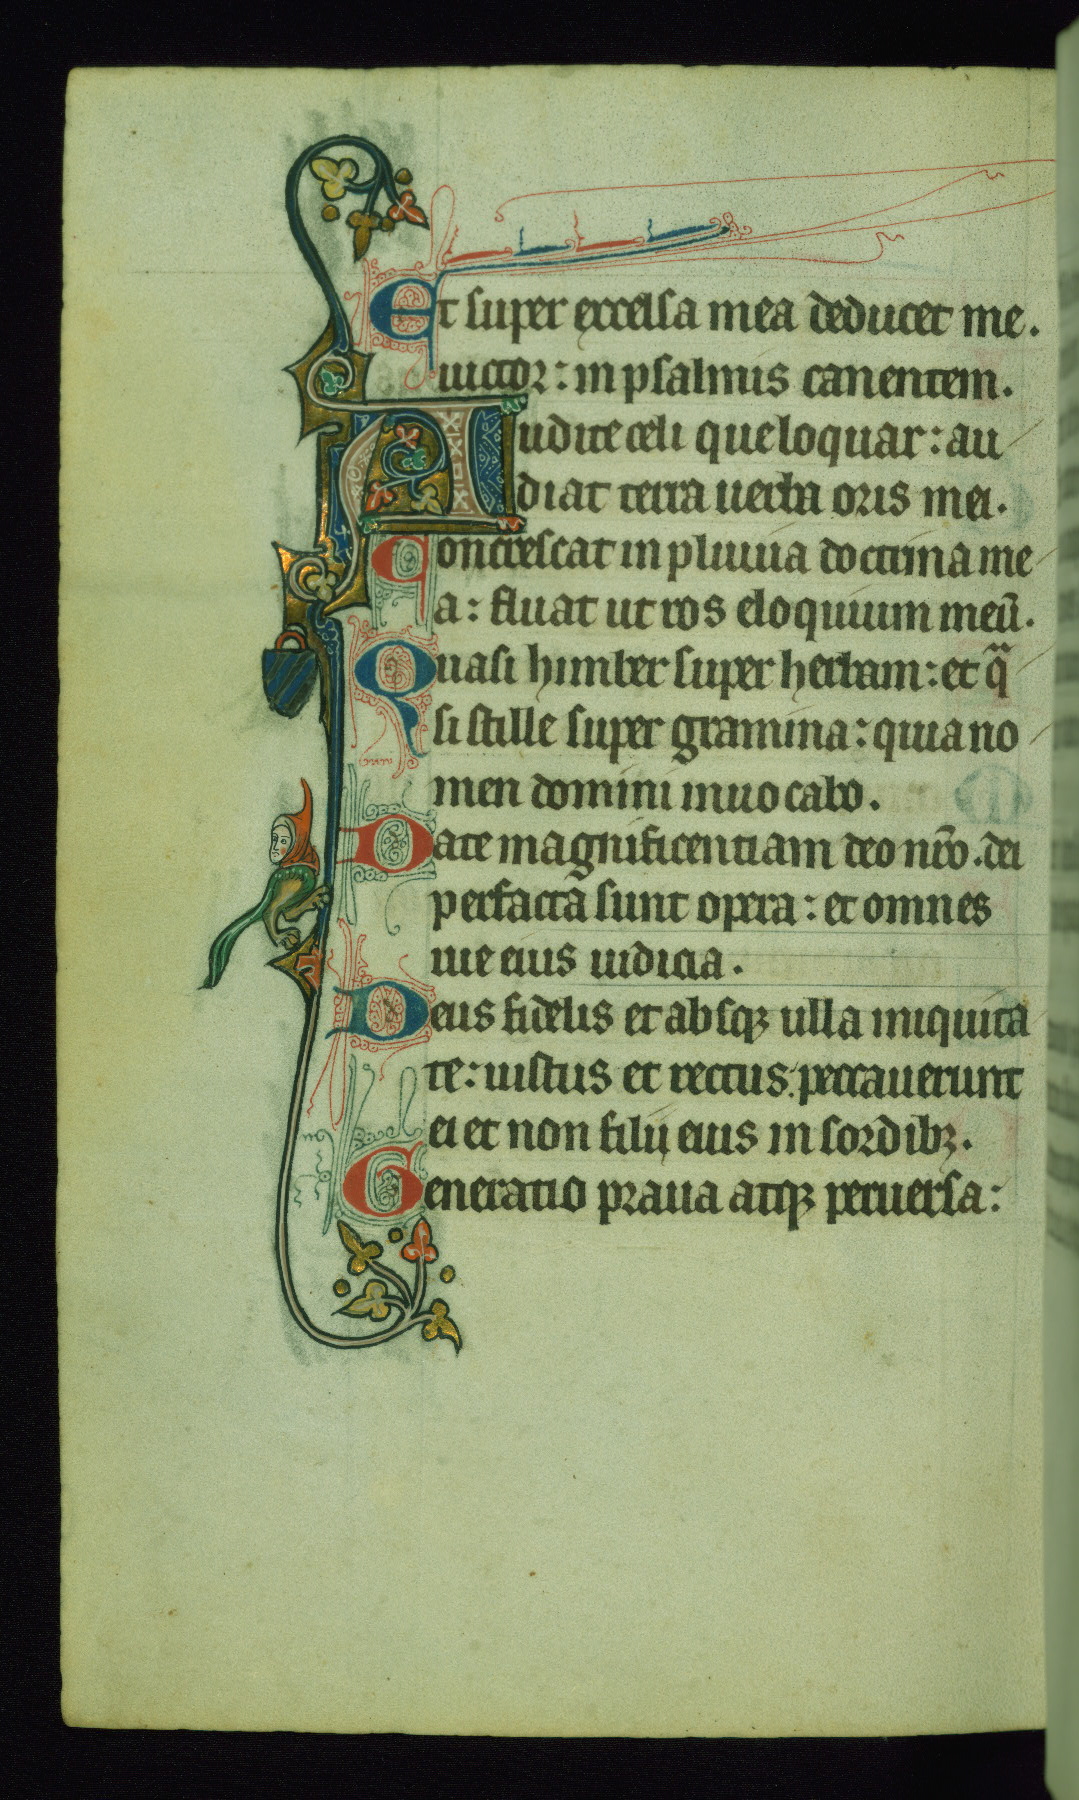 Et super excelsa mea deducet me.
uictor: in psalmis canentem.
Audite celi que loquar: au
diat terra uerba oris mei.
Concrescat in pluuia doctrina me
a: fluat ut ros eloquium meū.
Quasi himber super herbam: et qͣ
si stille super gramina: quia no
men domini inuocabo.
Date magnificentiam deo nr̄o. dei
perfacta sunt opera: et omnes
uie eius iudicia.
Deus fidelis et absqꝫ ulla iniquita
te: iustus et rectus. peccauerunt
ei et non filij eius in sordibꝫ.
Generatio praua atqꝫ peruersa: